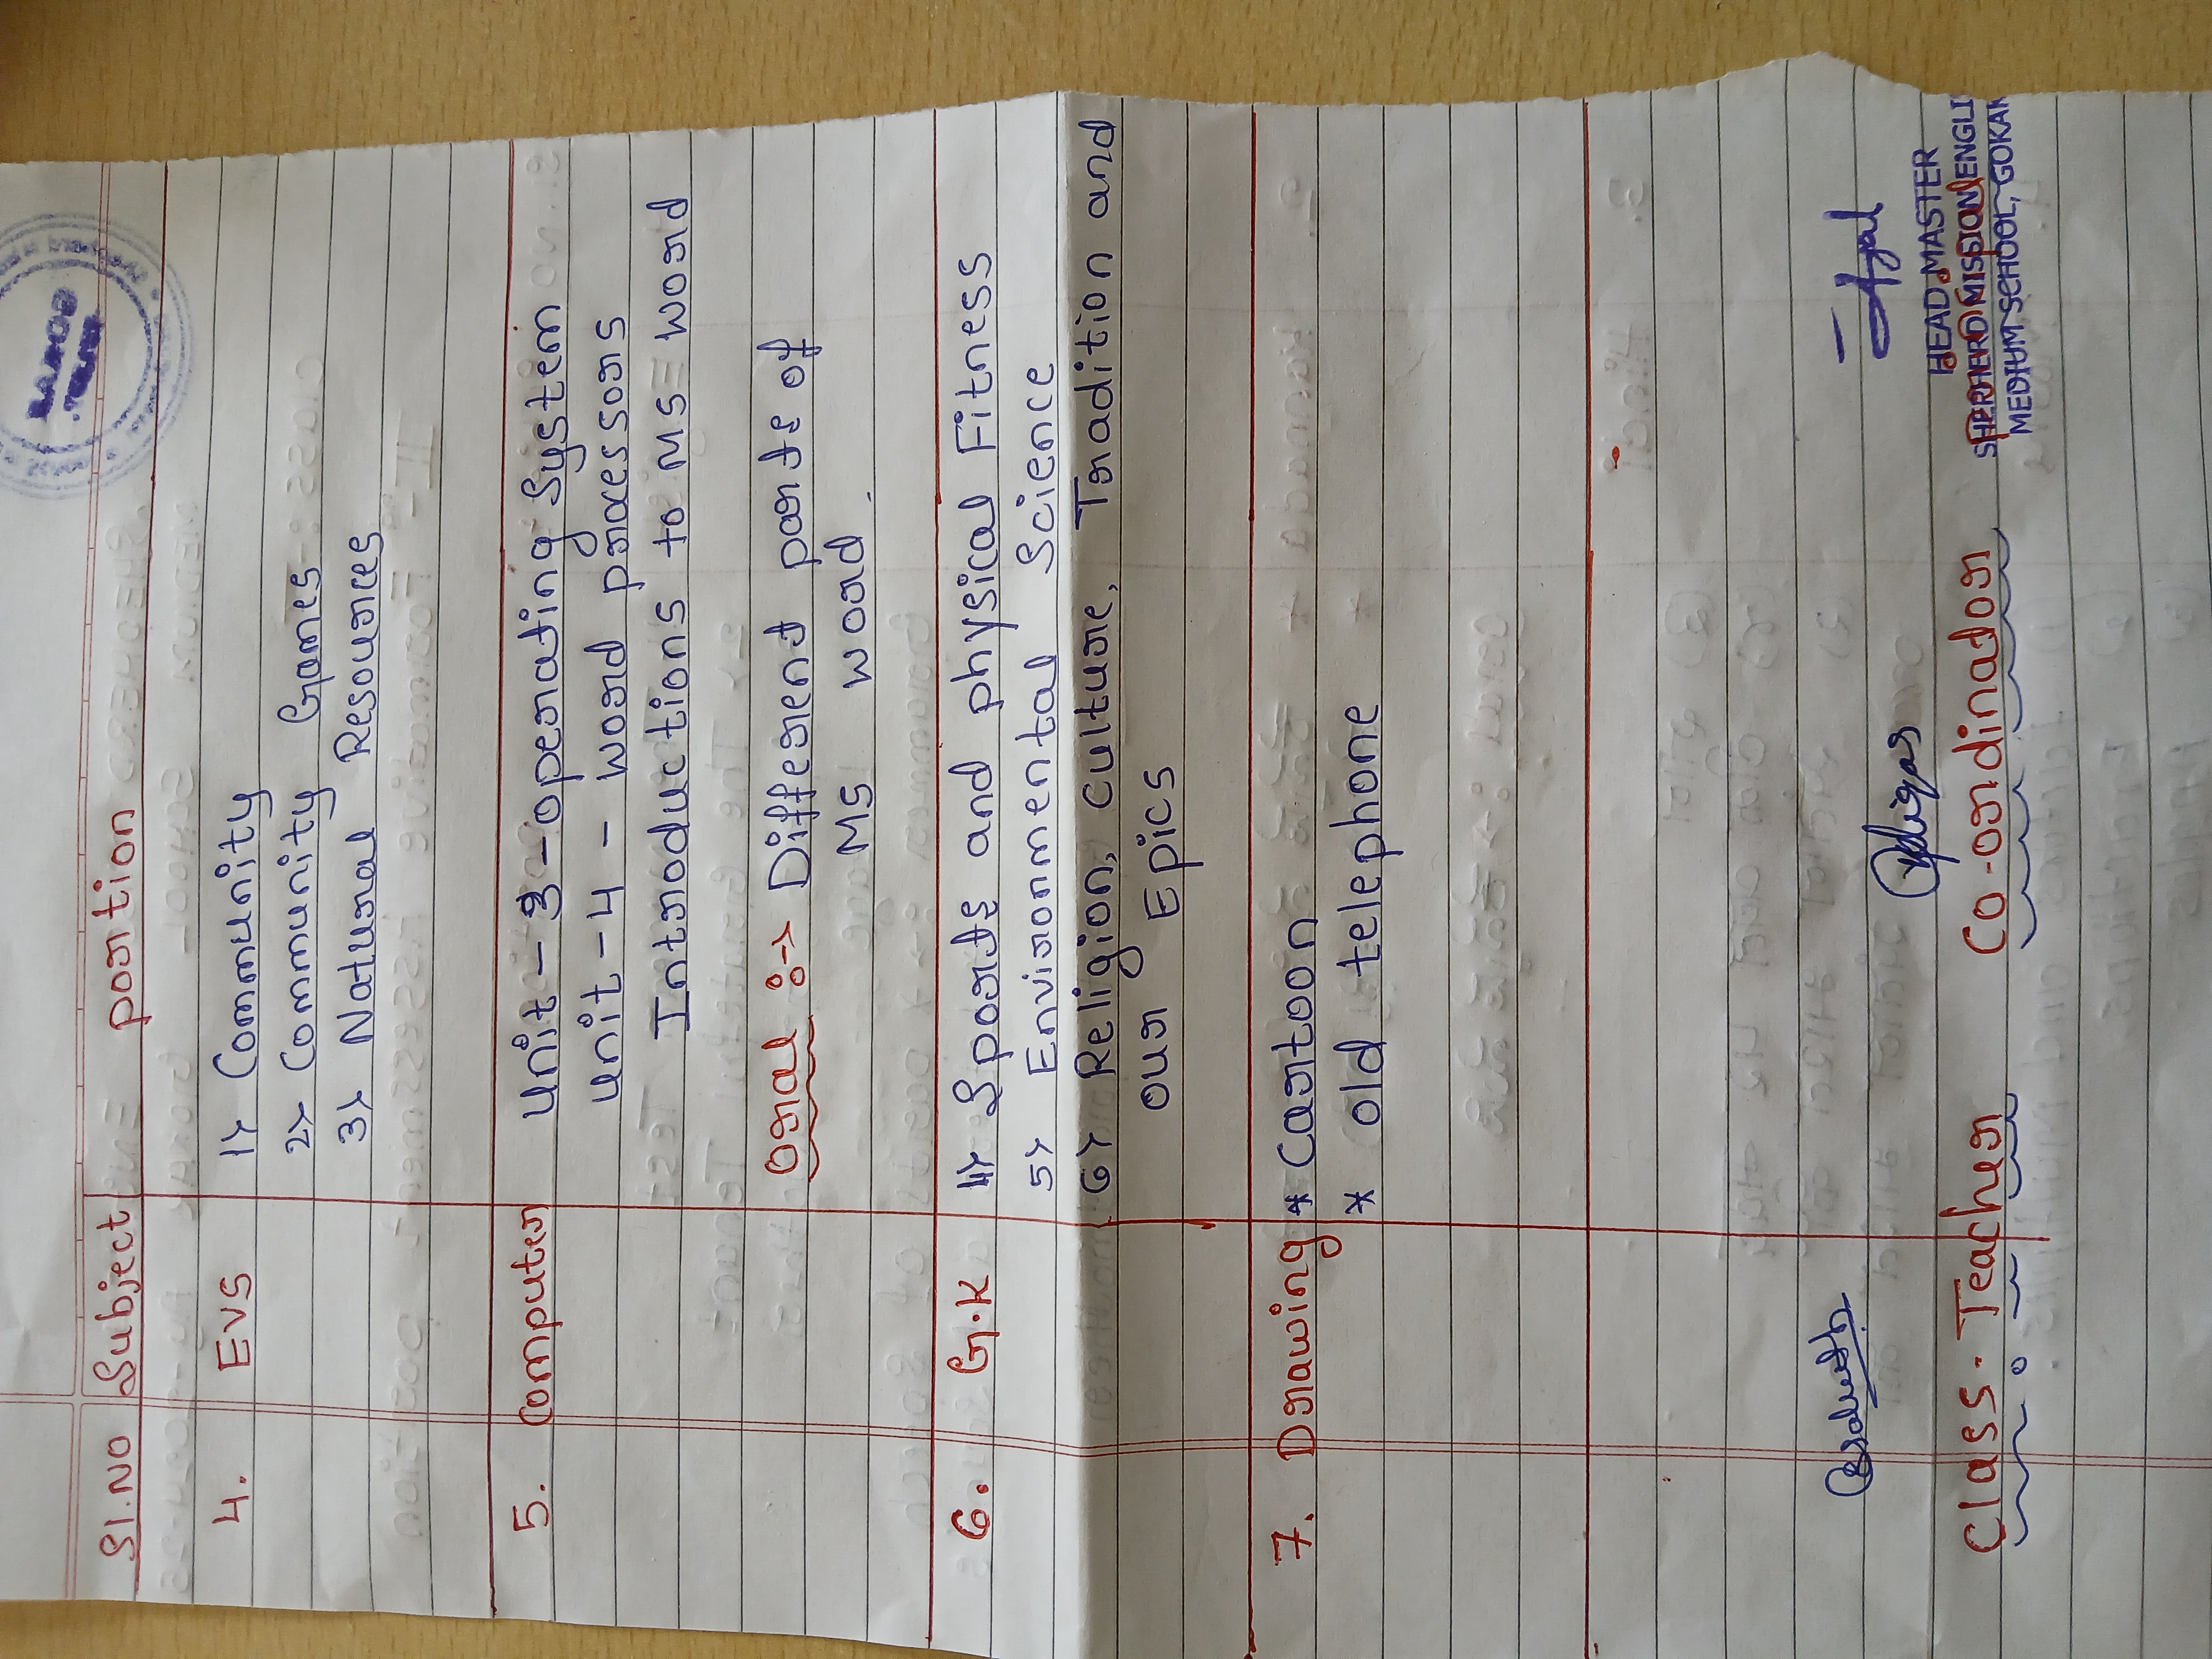 Sl.NO Subject portion
4. EVS 1> Community
2> Community Games
3> Natural Resources
5. Computer unit-3-operating System
unit-4 - word processors
Introductions to MS word
Oral :-> Different parts of
MS word
6. G.K 4> Sports and physical Fitness
5> Environmental Science
6> Religion, Culture, Tradition and
our Epics
7. Drawing * Cartoon
* old telephone
HEAD MASTER
SHEPHERD MISSION ENGLI
MEDIUM SCHOOL, GOKAK
Class. Teacher Co-ordinador